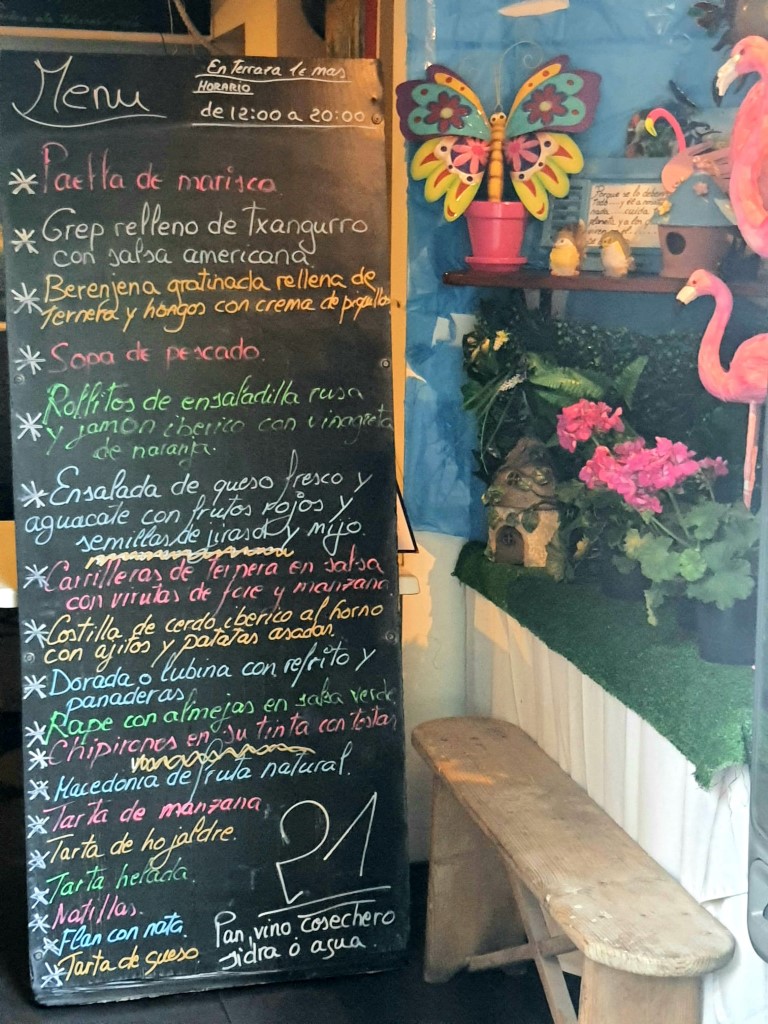 Menu
En Terraza 1€ mas
HORARIO
de 12:00 a 20:00
* Paella de marisco
* Crep relleno de Txangurro
con salsa americana
* Berenjena gratinada rellena de
Ternera y hongos con crema de piquillos
* Sopa de pescado.
* Rollitos de ensaladilla rusa
y jamón iberico con vinagreta
de naranja.
* Ensalada de queso fresco y
aguacate con frutos rojos y
semillas de jirasol y mijo.
* Carrilleras de Ternera en salsa
con virutas de foie y manzana
* Costilla de cerdo iberico al horno
con ajitos y patatas asadas.
* Dorada o lubina con refrito y
panaderas
* Rape con almejas en salsa verde
* Chipirones en su tinta con tostas
* Macedonia de fruta natural.
* Tarta de manzana
* Tarta de hojaldre.
* Tarta helada.
* Natillas.
* Flan con nata.
* Tarta de queso.
21
Pan, vino cosechero
sidra ó agua
Porque se lo debemos
Todo
nada
planeta y a los